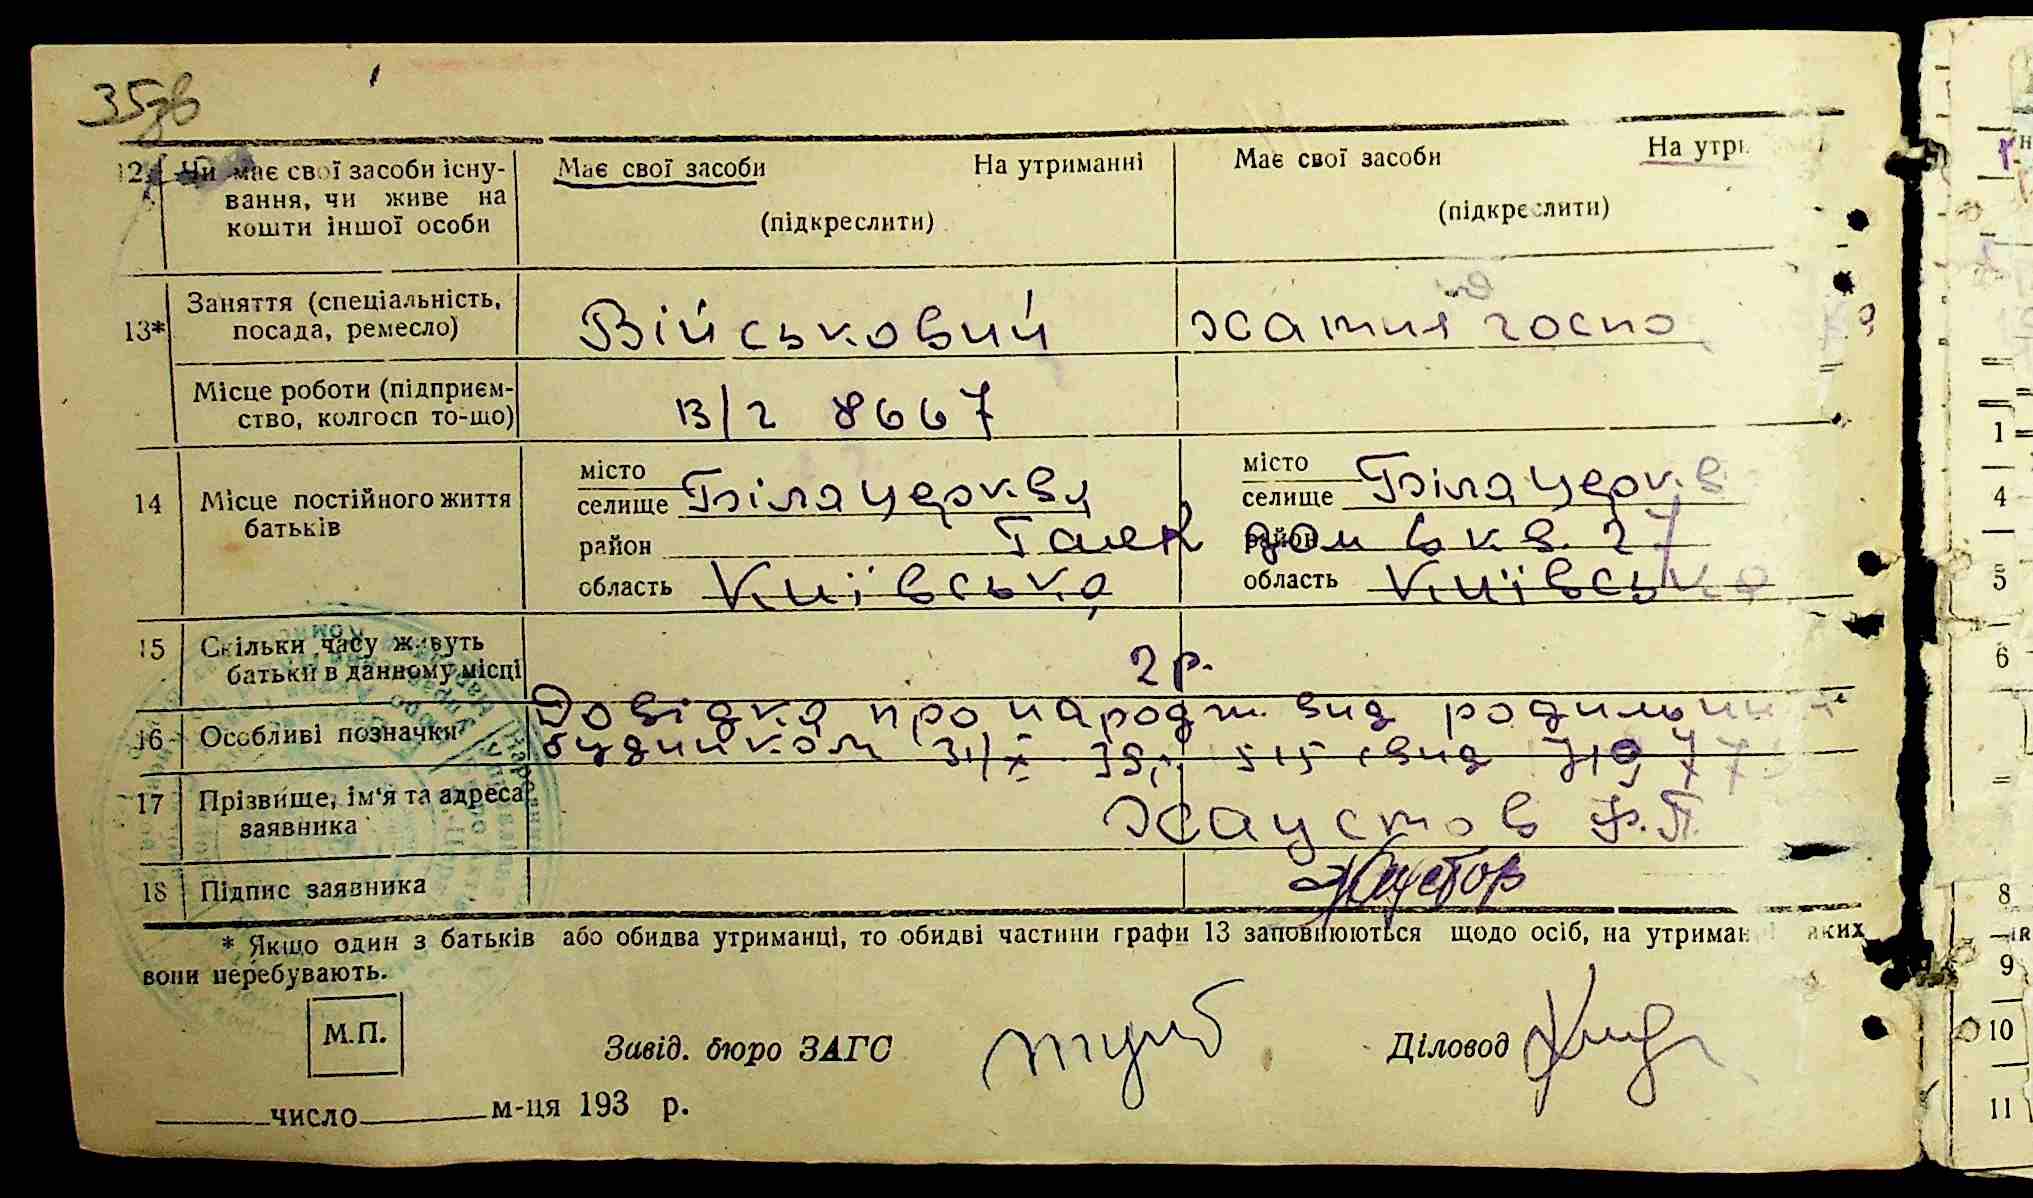 35зв
12. Чи має свої засоби існу- Має свої засоби На утриманні Має свої засоби На утри
вання, чи живе на
кошти іншої особи (підкреслити) (підкреслити)
13* Заняття (спеціальність,
посада, ремесло) Військовий хатня госпо
Місце роботи (підприєм-
ство, колгосп то-що) в/г 8667
14 Місце постійного життя
батьків
місто
селище Біла Церква
район Гаєк дом 6 кв. 27
область Київська
місто
селище Біла Церкв
район
область Київська
15 Скільки часу живуть
батьки в данному місці 2 р.
16 Особливі позначки Довідка про народж. вид родильним
будинком 31/X 39 р. 515
17 Прізвище, ім'я та адреса
заявника Хаустов Ф.П.
18 Підпис заявника Хаустов
* Якщо один з батьків або обидва утриманці, то обидві частини графи 13 заповнюються щодо осіб, на утриман яких
вони перебувають.
М.П.
Завід. бюро ЗАГС Діловод
число м-ця 193 р.
1
4
5
6
8
9
10
11